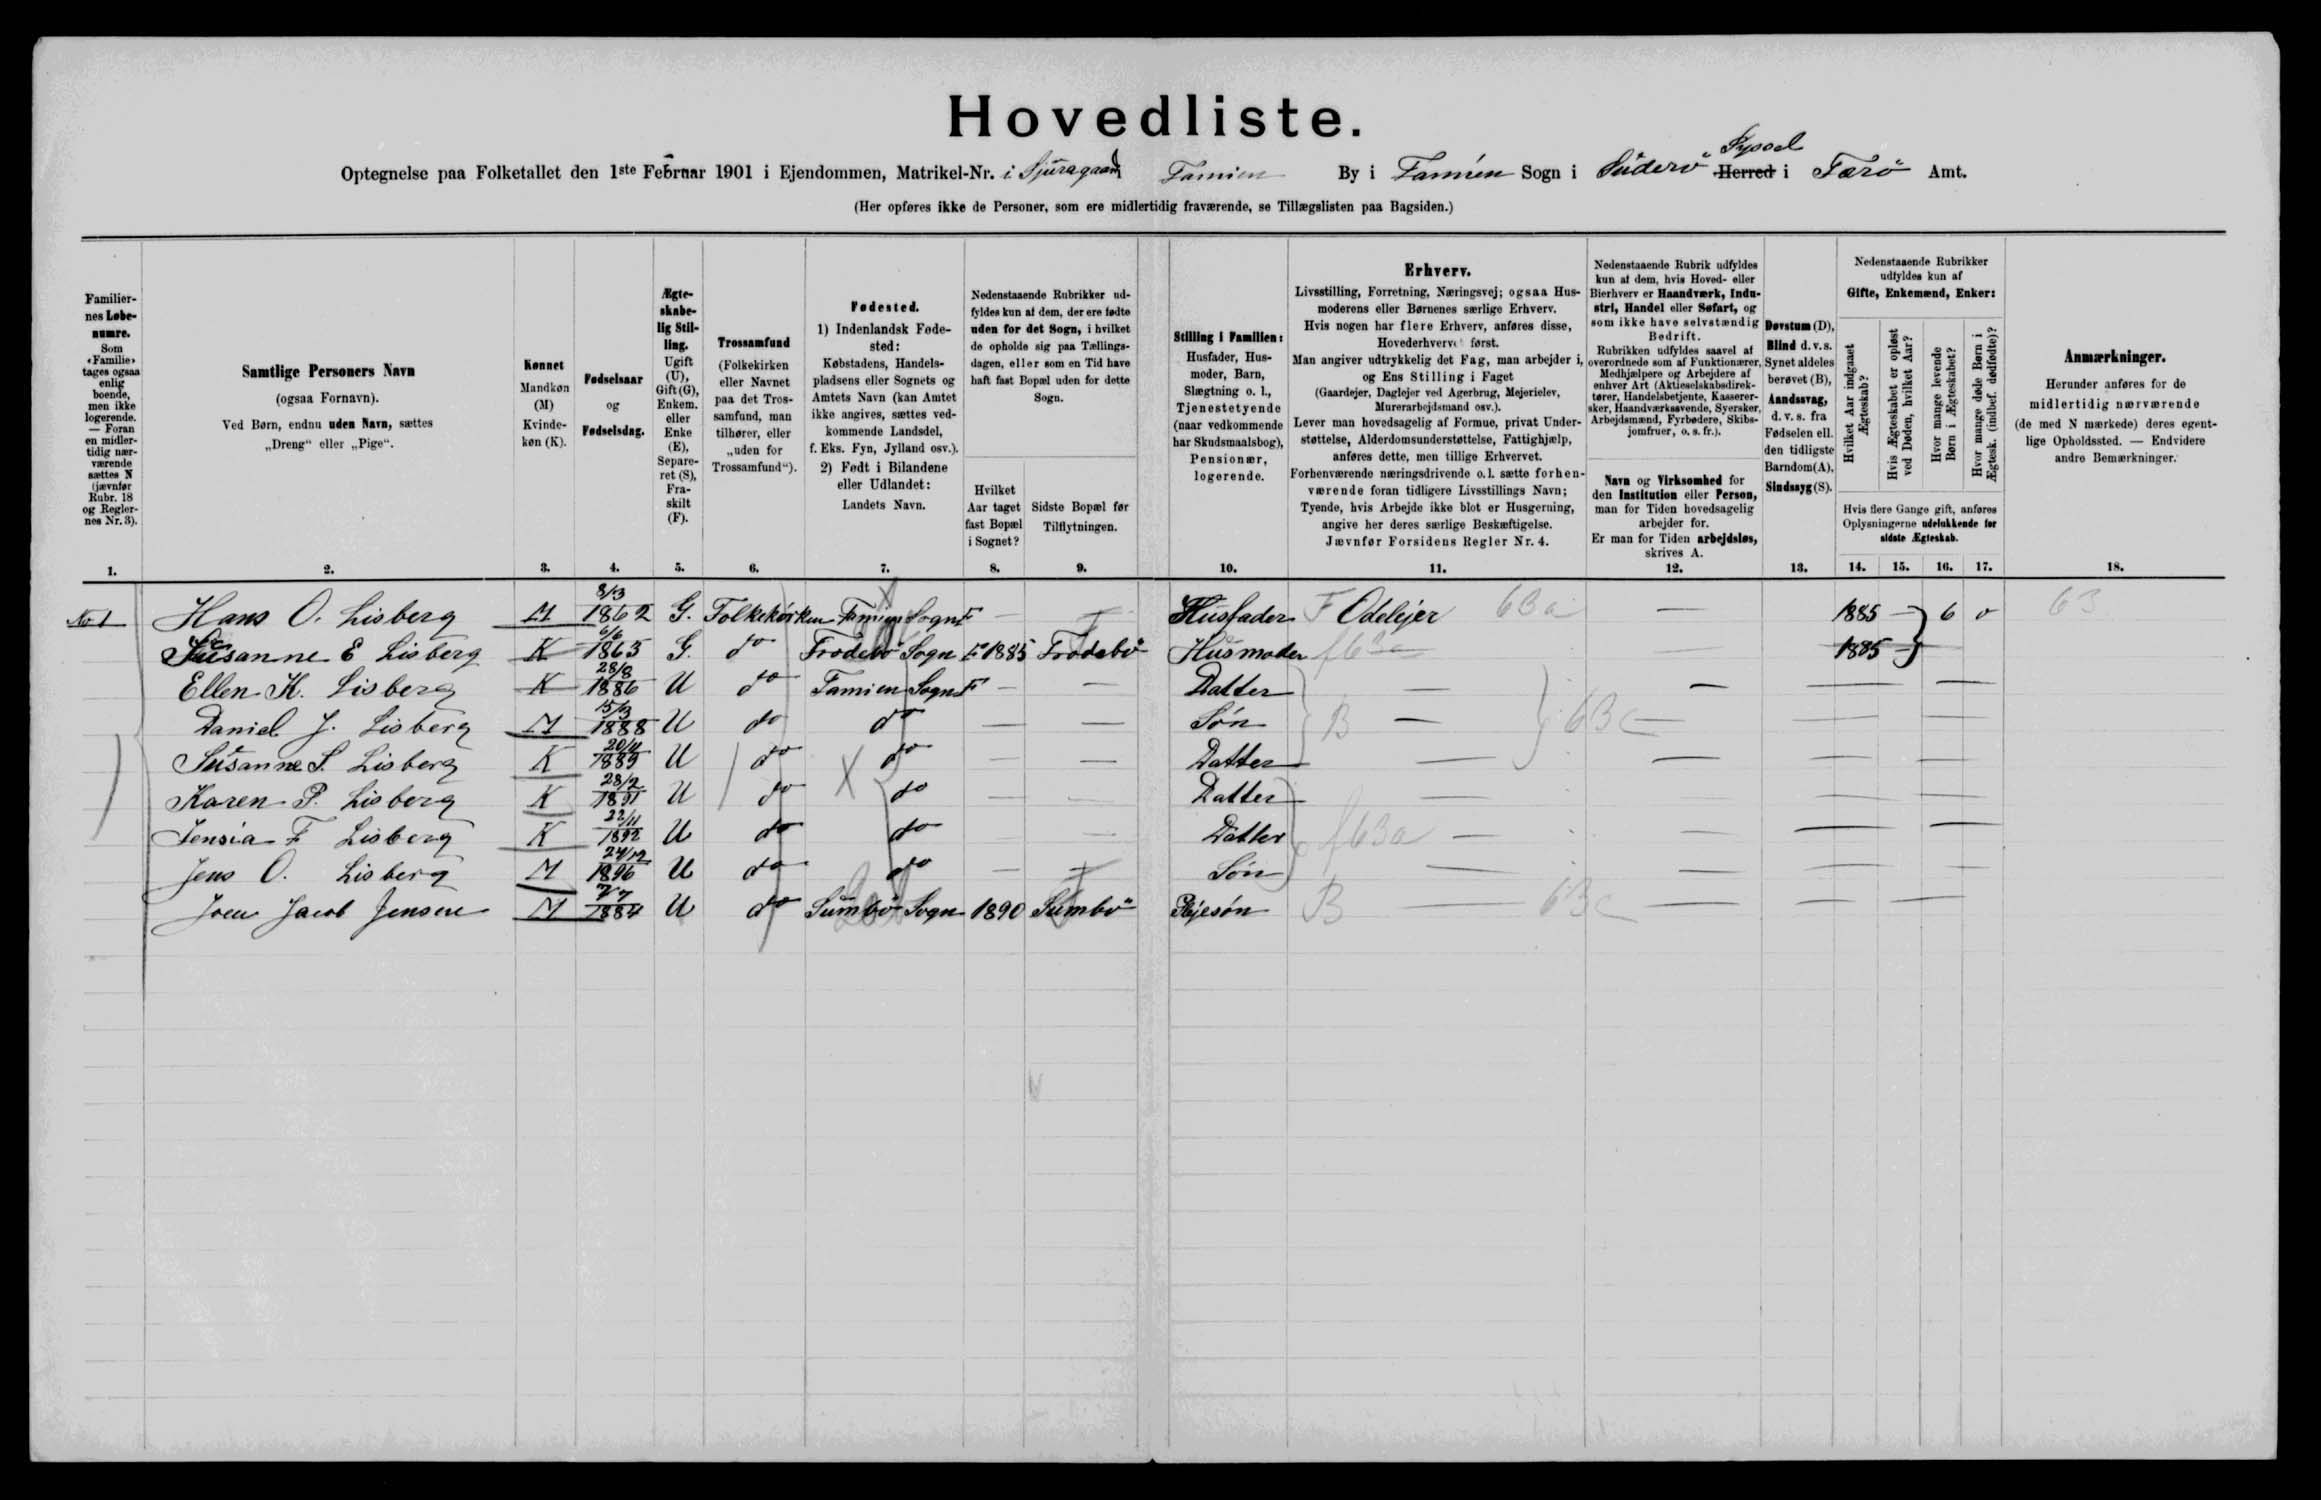 Hovedliste.
Optegnelse paa Folketallet den 1ste Februar 1901 i Ejendommen, Matrikel-Nr. i Sjúragaard Famien By i Famien Sogn i Süderö Syssel Herred i Færö Amt.
(Her opføres ikke de Personer, som ere midlertidig fraværende, se Tillægslisten paa Bagsiden.)
Familiernes Løbenumre.
Som «Familie» tages ogsaa enlig boende, men ikke logerende. — Foran en midlertidig nærværende sættes N (jævnfør Rubr. 18 og Reglernes Nr. 3).
1.
Samtlige Personers Navn
(ogsaa Fornavn).
Ved Børn, endnu uden Navn, sættes
„Dreng“ eller „Pige“.
2.
Kønnet
Mandkøn (M)
Kvindekøn (K).
3.
Fødselsaar
og
Fødselsdag.
4.
Ægteskabelig Stilling.
Ugift (U), Gift (G), Enkem. eller Enke (E), Separeret (S), Fraskilt (F).
5.
Trossamfund
(Folkekirken eller Navnet paa det Trossamfund, man tilhører, eller „uden for Trossamfund“).
6.
Fødested.
1) Indenlandsk Fødested:
Købstadens, Handelspladsens eller Sognets og Amtets Navn (kan Amtet ikke angives, sættes vedkommende Landsdel, f. Eks. Fyn, Jylland osv.).
2) Født i Bilandene eller Udlandet:
Landets Navn.
7.
Nedenstaaende Rubrikker udfyldes kun af dem, der ere fødte uden for det Sogn, i hvilket de opholde sig paa Tællingsdagen, eller som en Tid have haft fast Bopæl uden for dette Sogn.
Hvilket Aar taget fast Bopæl i Sognet?
8.
Sidste Bopæl før Tilflytningen.
9.
Stilling i Familien:
Husfader, Husmoder, Barn, Slægtning o. l., Tjenestetyende (naar vedkommende har Skudsmaalsbog), Pensionær, logerende.
10.
Erhverv.
Livsstilling, Forretning, Næringsvej; ogsaa Husmoderens eller Børnenes særlige Erhverv.
Hvis nogen har flere Erhverv, anføres disse, Hovederhvervet først.
Man angiver udtrykkelig det Fag, man arbejder i, og Ens Stilling i Faget
(Gaardejer, Daglejer ved Agerbrug, Mejerielev, Murerarbejdsmand osv.).
Lever man hovedsagelig af Formue, privat Understøttelse, Alderdomsunderstøttelse, Fattighjælp, anføres dette, men tillige Erhvervet.
Forhenværende næringsdrivende o. l. sætte forhenværende foran tidligere Livsstillings Navn;
Tyende, hvis Arbejde ikke blot er Husgerning, angive her deres særlige Beskæftigelse.
Jævnfør Forsidens Regler Nr. 4.
11.
Nedenstaaende Rubrik udfyldes kun af dem, hvis Hoved- eller Bierhverv er Haandværk, Industri, Handel eller Søfart, og som ikke have selvstændig Bedrift.
Rubrikken udfyldes saavel af overordnede som af Funktionærer, Medhjælpere og Arbejdere af enhver Art (Aktieselskabsdirektører, Handelsbetjente, Kasserersker, Haandværkssvende, Syersker, Arbejdsmænd, Fyrbødere, Skibsjomfruer, o. s. fr.).
Navn og Virksomhed for den Institution eller Person, man for Tiden hovedsagelig arbejder for.
Er man for Tiden arbejdsløs, skrives A.
12.
Døvstum (D), Blind d. v. s. Synet aldeles berøvet (B), Aandssvag, d. v. s. fra Fødselen ell. den tidligste Barndom (A), Sindssyg (S).
13.
Nedenstaaende Rubrikker udfyldes kun af
Gifte, Enkemænd, Enker:
Hvilket Aar indgaaet Ægteskab?
Hvis Ægteskabet er opløst ved Døden, hvilket Aar?
Hvor mange levende Børn i Ægteskabet?
Hvor mange døde Børn i Ægtesk. (indbef. dødfødte)?
Hvis flere Gange gift, anføres Oplysningerne udelukkende for sidste Ægteskab.
14. 15. 16. 17.
Anmærkninger.
Herunder anføres for de midlertidig nærværende (de med N mærkede) deres egentlige Opholdssted. — Endvidere andre Bemærkninger.
18.
No 1 Hans O. Lisberg M 8/3 1862 G. Folkekirken Famien Sogn F — Husfader F Odelejer 63a — 1885 — 6 0 63
Susanne E Lisberg K 6/6 1863 G. do Frodebö Sogn F 1885 Frodebö Husmoder f63a — 1885 —
Ellen K. Lisberg K 28/8 1886 U do Famien Sogn F — — Datter — —
Daniel J. Lisberg M 15/3 1888 U do do — — Søn B — 63c —
Susanne S. Lisberg K 20/11 1889 U do do — — Datter — —
Karen P. Lisberg K 28/2 1891 U do do — — Datter —
Jensia F Lisberg K 22/11 1892 U do do — — Datter f63a — —
Jens O. Lisberg M 24/12 1896 U do do — — Søn — —
Joen Jacob Jensen M 7/7 1884 U do Sumbö Sogn 1890 Sumbö Plejesøn B — 63c —